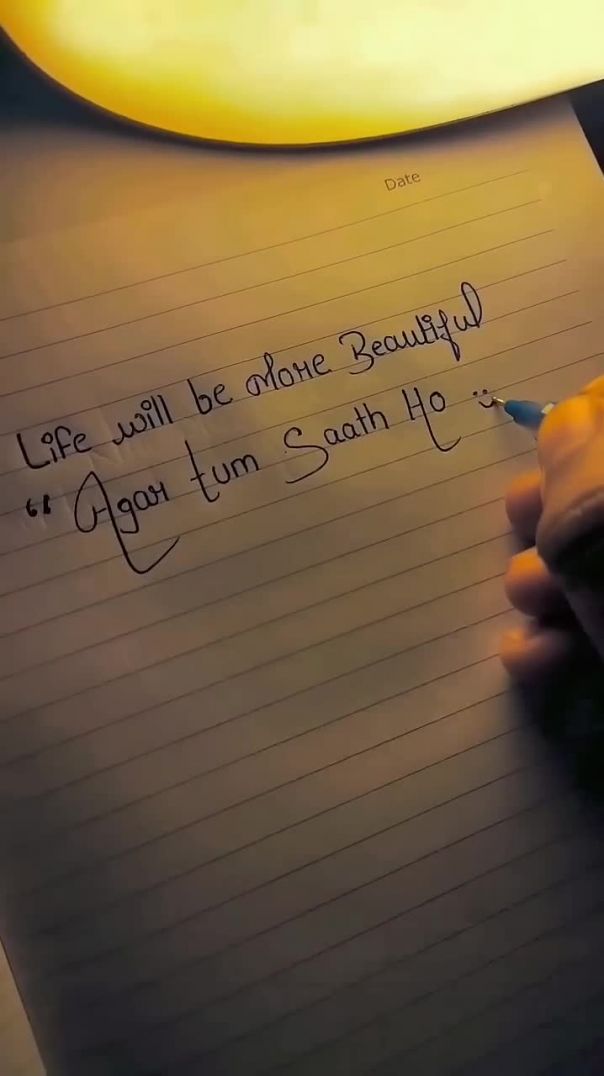 Date
Life will be More Beautiful
“ Agar tum Saath Ho